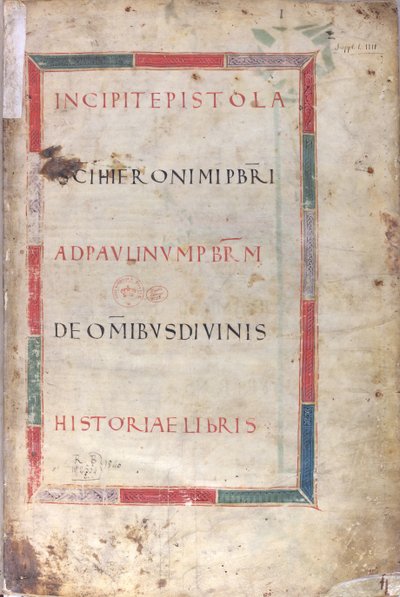 I
Suppl. l. 1111
INCIPITEPISTOLA
SCIHIERONIMIPB̄RI
ADPAVLINVMPB̄RM
DE OM̄IBVSDIVINIS
HISTORIAELIBRIS